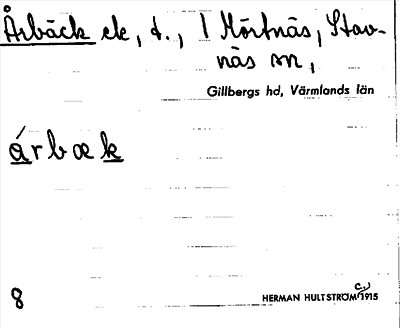 Årbäck ek, t., 1 Mörtnäs, Stav-
näs sn,
Gillbergs hd, Värmlands län
árbæk
8
HERMAN HULTSTRÖM 1915